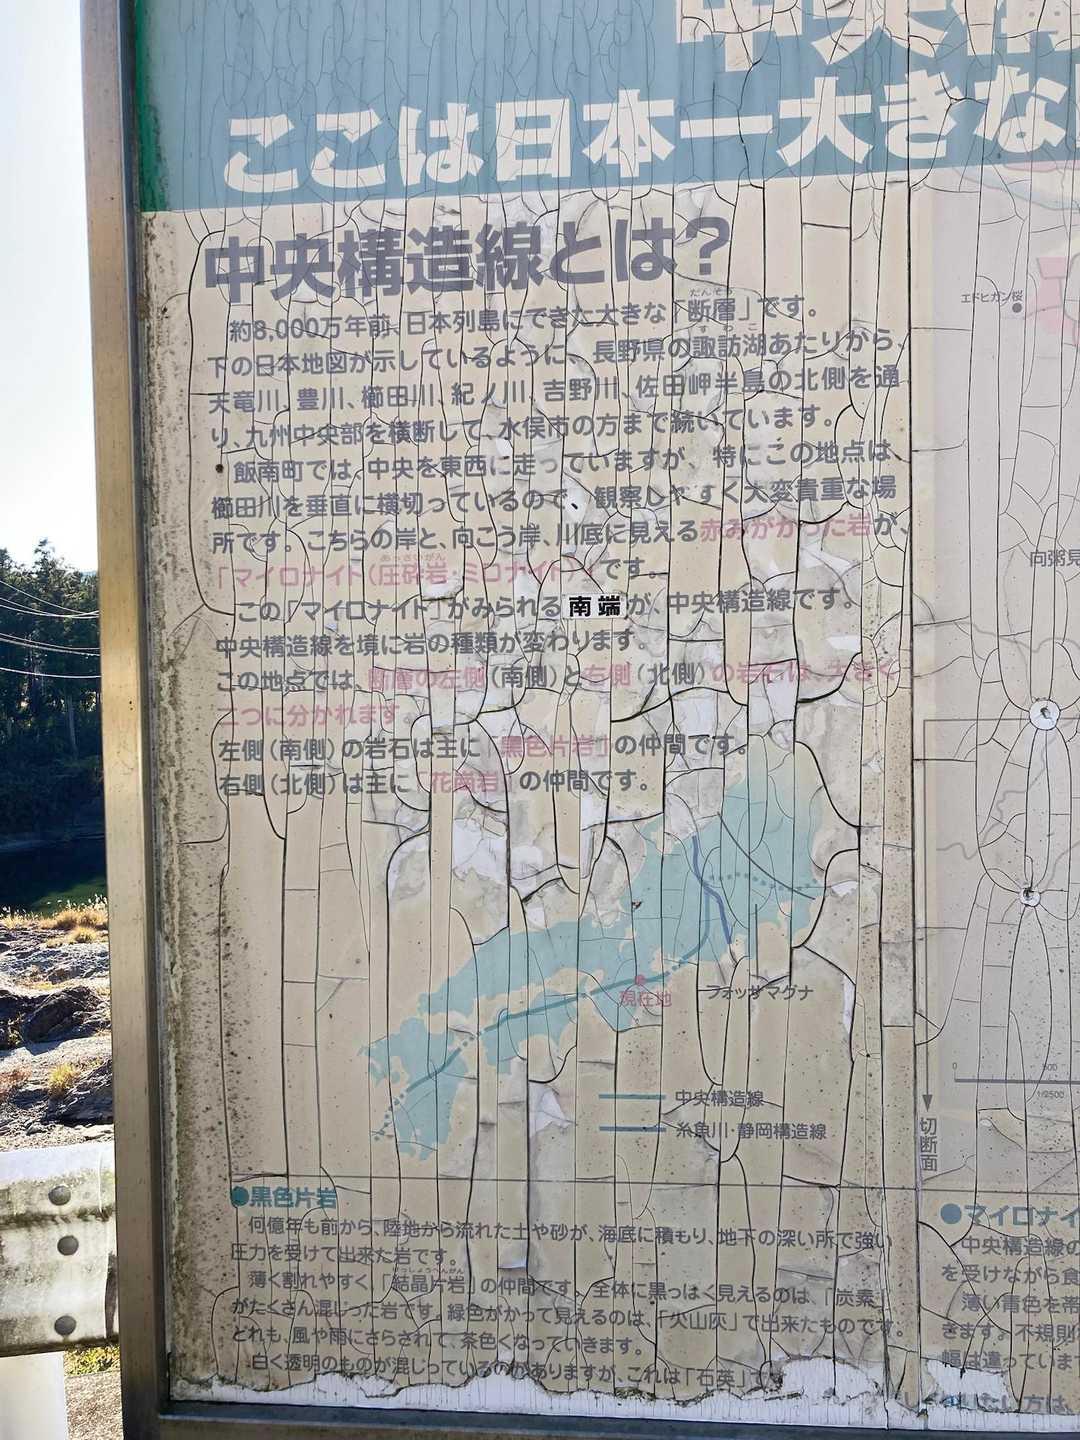 中央構
ここは日本一大きな
中央構造線とは?
約8,000万年前、日本列島にできた大きな「断層」です。
だんそう
下の日本地図が示しているように、長野県の諏訪湖あたりから、
すわこ
天竜川、豊川、櫛田川、紀ノ川、吉野川、佐田岬半島の北側を通
り、九州中央部を横断して、水俣市の方まで続いています。
飯南町では、中央を東西に走っていますが、特にこの地点は、
櫛田川を垂直に横切っているので、観察しやすく大変貴重な場
所です。こちらの岸と、向こう岸、川底に見える赤みがかった岩が、
「マイロナイト(圧砕岩・ミロナイト)」です。
あっさいがん
この「マイロナイト」がみられる南端が、中央構造線です。
中央構造線を境に岩の種類が変わります。
この地点では、断層の左側(南側)と右側(北側)の岩石は、大きく
二つに分かれます。
左側(南側)の岩石は主に「黒色片岩」の仲間です。
右側(北側)は主に「花崗岩」の仲間です。
現在地
フォッサマグナ
中央構造線
糸魚川・静岡構造線
●黒色片岩
何億年も前から、陸地から流れた土や砂が、海底に積もり、地下の深い所で強い
圧力を受けて出来た岩です。
薄く割れやすく、「結晶片岩」の仲間です。全体に黒っぽく見えるのは、「炭素」
けっしょうへんがん
がたくさん混じった岩です。緑色がかって見えるのは、「火山灰」で出来たものです。
どれも、風や雨にさらされて、茶色くなっていきます。
白く透明のものが混じっているのがありますが、これは「石英」です
エドヒガン桜
向粥見
500
1/2500
切断面
●マイロナイ
中央構造線の
を受けながら食
薄い青色を帯
きます。不規則
幅は違っていま
い方は、